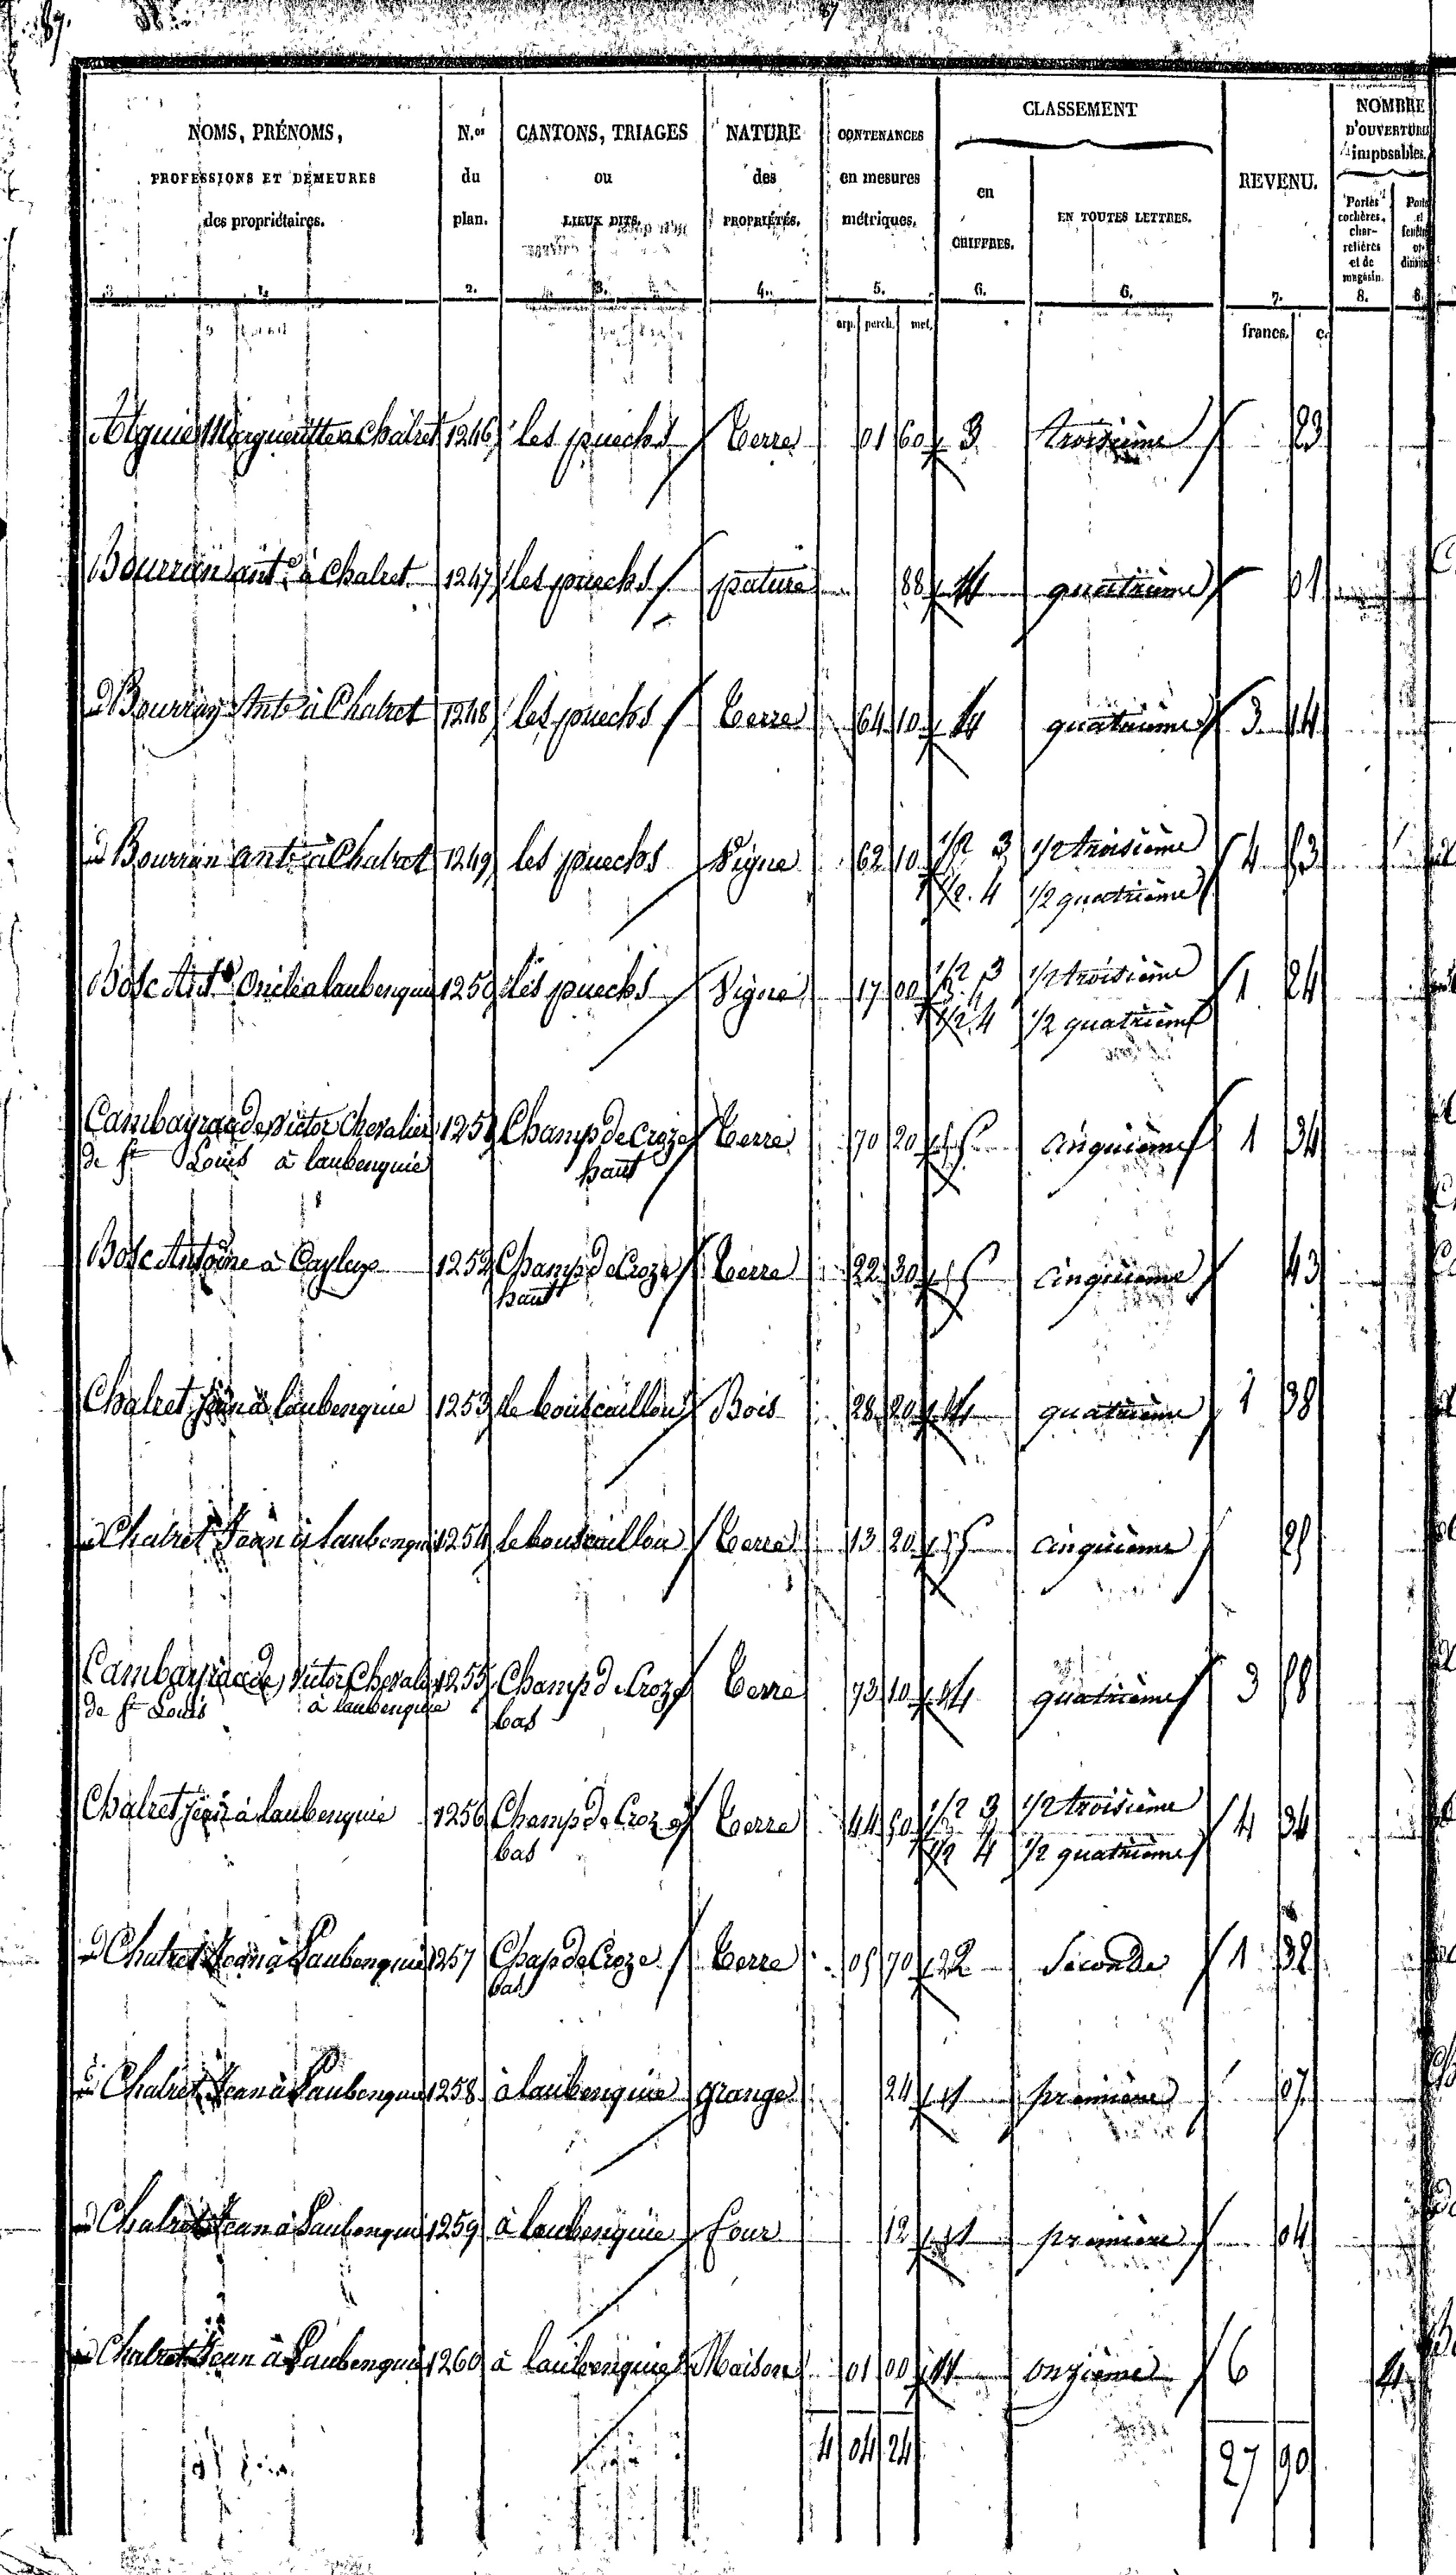 87
NOMS, PRÉNOMS, PROFESSIONS ET DEMEURES des propriétaires. 1.
N.os du plan. 2.
CANTONS, TRIAGES ou LIEUX DITS. 3.
NATURE des PROPRIÉTÉS. 4.
CONTENANCES en mesures métriques. 5.
CLASSEMENT
en CHIFFRES. 6.
EN TOUTES LETTRES. 6.
REVENU. 7.
NOMBRE D'OUVERTURES imposables.
Portes cochères, charretières et de magasin. 8.
arp. perch. met. francs. c.
Margueritte a Chalret 1246 les puechs Terre 01 60 3 troisième 23
Bourran ant.e à Chalret 1247 les puechs pature 88 4 quatrième 01
Bourran Ant.e à Chalret 1248 les puechs Terre 64 10 4 quatrième 3 14
Bourran ant.e à Chalret 1249 les puechs Vigne 62 10 1/2 3 1/2 troisième 4
1/2 4 1/2 quatrième
Bosc 1250 les puechs Vigne 17 00 1/2 3 1/2 troisième 1 24
1/2 4 1/2 quatrième
Victor Chevalier 1251 Champ de Croze Terre 70 20 5 cinquième 1 34
de St Louis à laubenquie haut
Bosc Antoine à 1252 Champ de Croze Terre 22 30 5 cinquième 43
haut
Chalret Jean à laubenquie 1253 le bouscaillou Bois 28 20 4 quatrième 1 38
Chalret Jean à Laubenquie 1254 le bouscaillou Terre 13 20 5 cinquième 25
Victor Chevalier 1255 Champ de Croze Terre 73 10 4 quatrième 3 58
de St Louis à laubenquie bas
Chalret Jean à laubenquie 1256 Champ de Croze Terre 44 50 1/2 3 1/2 troisième 4 34
bas 1/2 4 1/2 quatrième
Chalret Jean à Laubenquie 1257 Chap de Croze Terre 05 70 2 Seconde 1 32
bas
Chalret Jean à Laubenquie 1258 à laubenquie grange 24 1 première 07
Chalret Jean à Laubenquie 1259 à laubenquie four 12 1 première 04
Chalret Jean à Laubenquie 1260 à laubenquie Maison 01 00 11 onzième 6 4
4 04 24 27 90